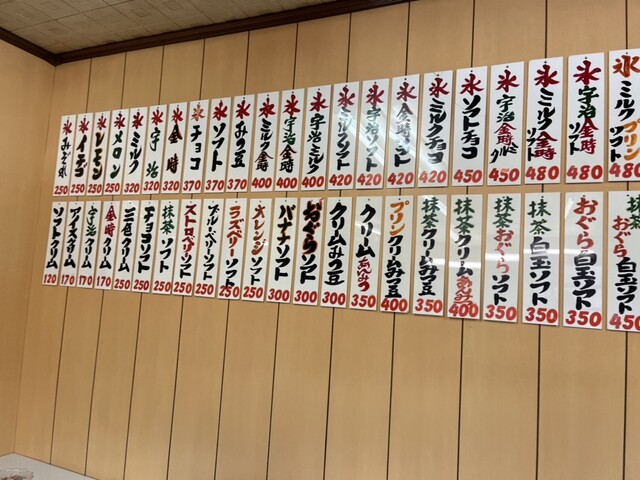 氷 みぞれ 250
氷 イチゴ 250
氷 レモン 250
氷 メロン 250
氷 ミルク 320
氷 宇治 320
氷 金時 320
氷 チョコ 370
氷 ソフト 370
氷 みつ豆 370
氷 ミルク金時 400
氷 宇治金時 400
氷 宇治ミルク 400
氷 ミルクソフト 420
氷 宇治ソフト 420
氷 金時ソフト 420
氷 ミルクチョコ 420
氷 ソフトチョコ 450
氷 宇治金時ミルク 450
氷 ミルク金時ソフト 480
氷 宇治金時ソフト 480
氷 ミルクプリンソフト 480
ソフトクリーム 120
アイスクリーム 170
宇治クリーム 170
金時クリーム 250
三色クリーム 250
チョコソフト 250
抹茶ソフト 250
ストロベリソフト 250
ブルーベリーソフト 250
ラズベリーソフト 250
オレンジソフト 250
バナナソフト 300
おぐらソフト 300
クリームみつ豆 300
クリームあんみつ 350
プリンクリームみつ豆 400
抹茶クリームみつ豆 350
抹茶クリームあんみつ 400
抹茶おぐらソフト 350
抹茶白玉ソフト 350
おぐら白玉ソフト 350
抹茶おぐら白玉ソフト 450